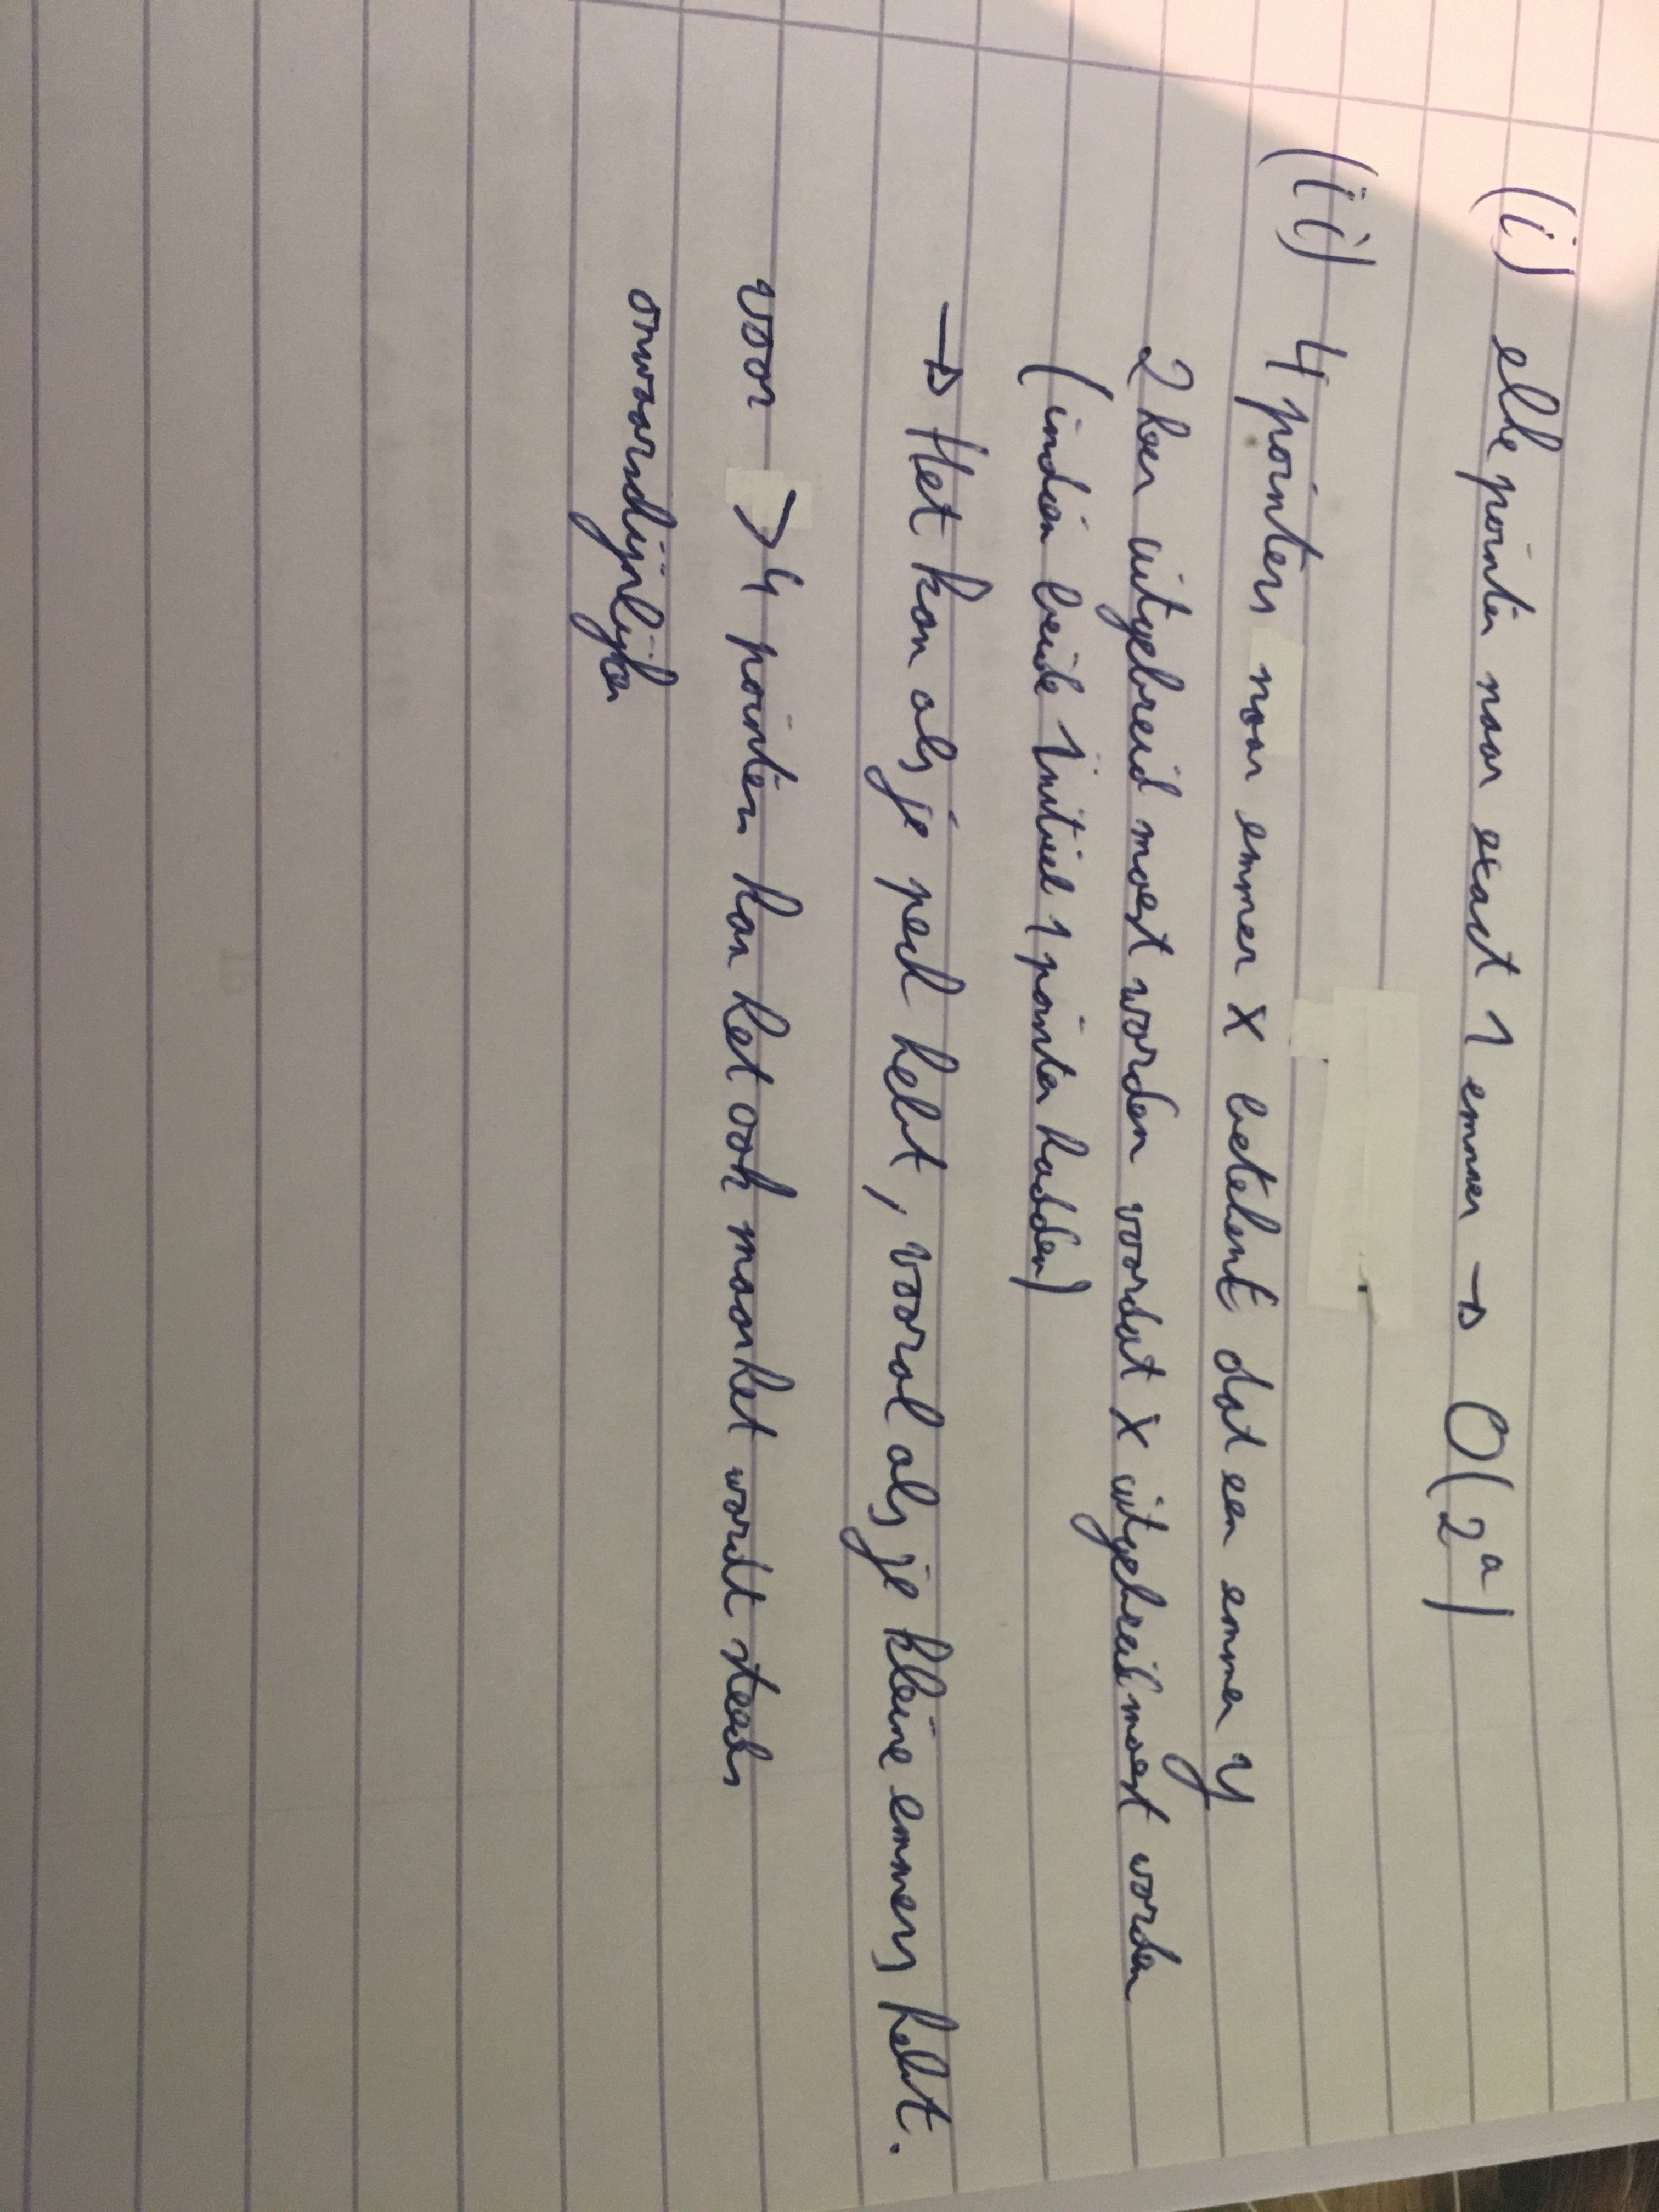 (i) elke pointer naar exact 1 emmer → O(2^a)
(ii) 4 pointers naar emmer x betekent dat een emmer y
2 keer uitgebreid moest worden voordat x uitgebreid moest worden
(indien beide initieel 1 pointer hadden)
→ Het kan als je pech hebt, vooral als je kleine emmers hebt.
voor > 4 pointers kan het ook maar het wordt steeds
onwaarschijnlijker